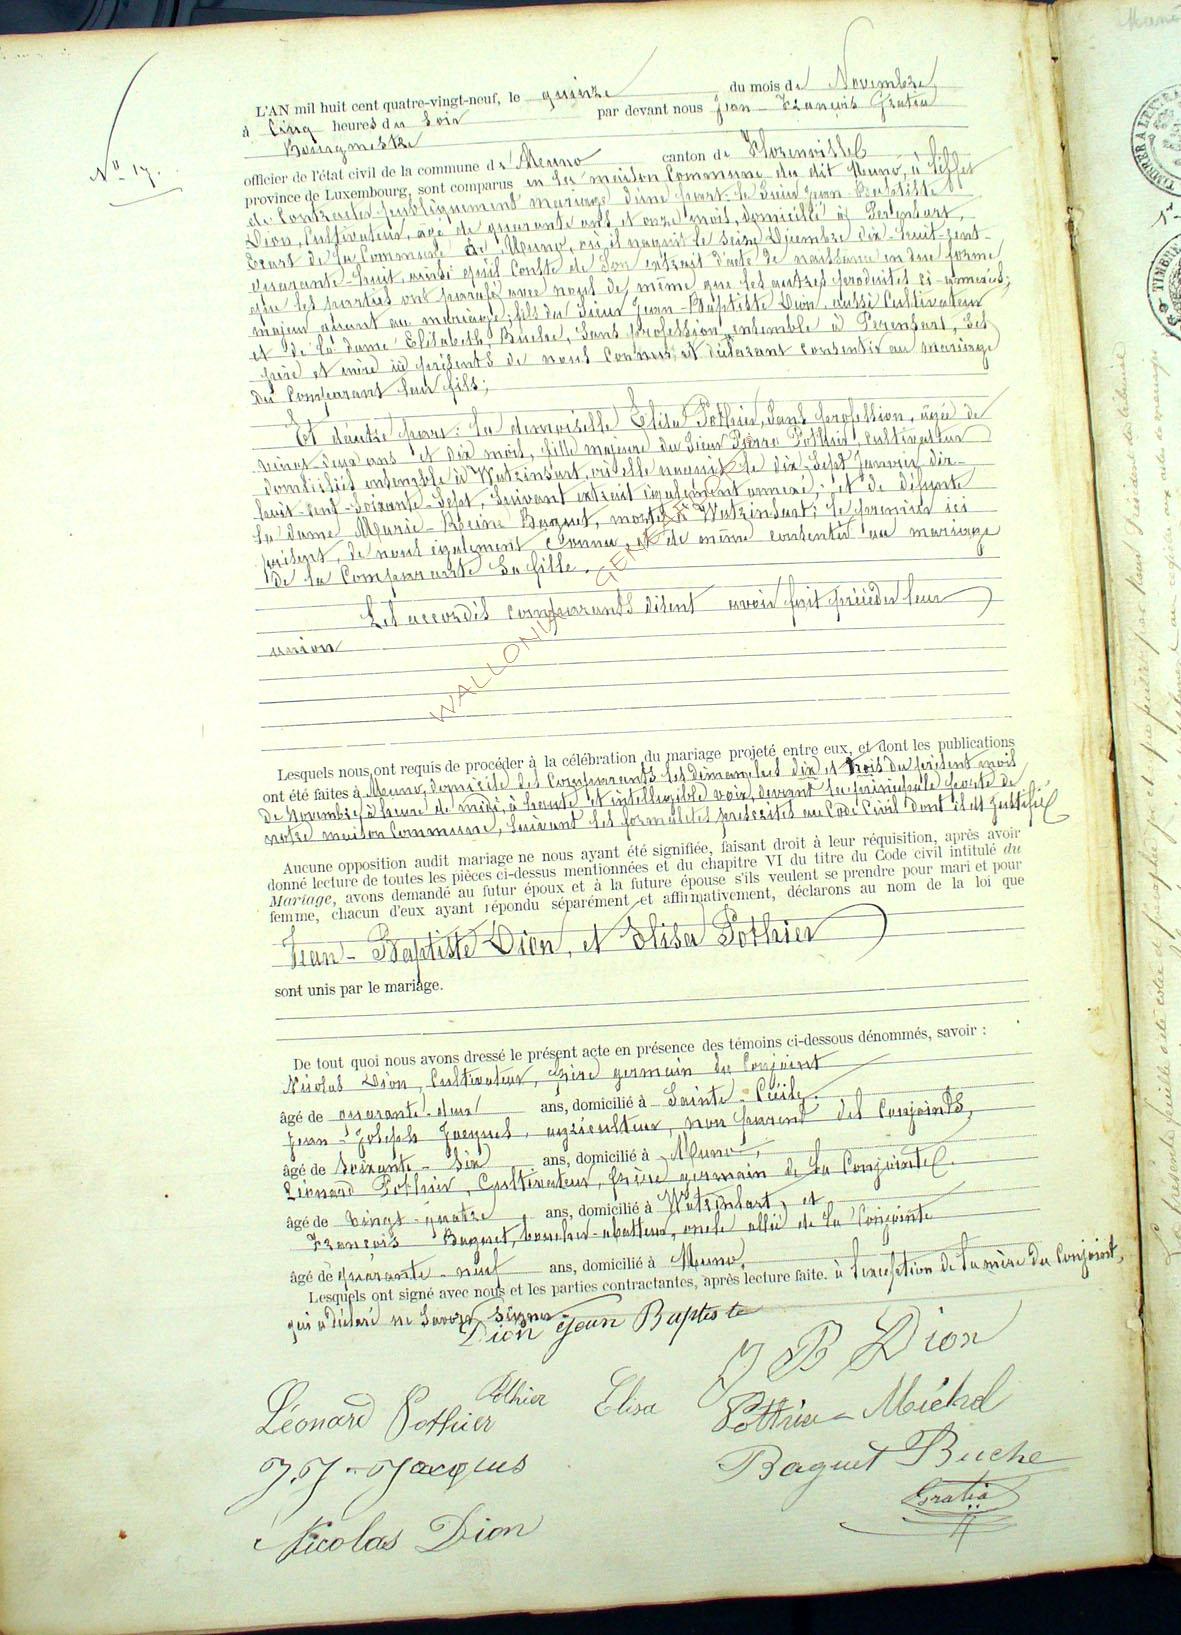 N° 17.
L'AN mil huit cent quatre-vingt-neuf, le quinze du mois de Novembre
à Cinq heures du soir par devant nous Jean-François Gratia
Bourgmestre
officier de l'état civil de la commune de Muno canton de Florenville
province de Luxembourg, sont comparus en la maison Commune du dit Muno, à l'effet
de contracter publiquement mariage d'une part: le Sieur Jean Baptiste
Dion, Cultivateur, âgé de quarante ans et onze mois, domicilié à
Ecart de la Commune de Muno, où il naquit le seize Décembre dix-huit-cent-
quarante-huit, ainsi qu'il Conste de son extrait d'acte de naissance en due forme,
que les parties ont paraphé avec nous de même que les autres produites ci-annexées;
majeur quant au mariage; fils du Sieur Jean-Baptiste Dion, aussi Cultivateur
et de la dame Elisabeth Buche, sans profession, ensemble à ses
père et mère ici présents de nous Connus, et déclarant consentir au mariage
du Comparant leur fils;
Et d'autre part: la demoiselle Elisa Pothier, Sans profession, âgée de
vingt-deux ans et dix mois, fille majeure du Sieur Pothier, cultivateur
domiciliés ensemble à Watrinsart, où elle naquit le dix-Sept Janvier dix-
huit-cent-Soixante-Sept, Suivant extrait également annexé; et de défunte
la dame Marie-Reine Baquet, morte à Watrinsart; le premier ici
présent, de nous également Connu, et de même consentir au mariage
de la Comparante Sa fille.
Les accordés comparants disent avoir fait précéder leur
union
WALLONIA GEN
Lesquels nous ont requis de procéder à la célébration du mariage projeté entre eux, et dont les publications
ont été faites à Muno, domicile des Comparants les dimanches dix et trois du présent mois
de Novembre, à heure de midi, à haute et intelligible voix, devant la principale porte de
notre maison Commune, Suivant les formalités prescrites au Code Civil dont il est justifié
Aucune opposition audit mariage ne nous ayant été signifiée, faisant droit à leur réquisition, après avoir
donné lecture de toutes les pièces ci-dessus mentionnées et du chapitre VI du titre du Code civil intitulé du
Mariage, avons demandé au futur époux et à la future épouse s'ils veulent se prendre pour mari et pour
femme, chacun d'eux ayant répondu séparément et affirmativement, déclarons au nom de la loi que
Jean-Baptiste Dion, et Elisa Pothier
sont unis par le mariage.
De tout quoi nous avons dressé le présent acte en présence des témoins ci-dessous dénommés, savoir :
Nicolas Dion, Cultivateur, frère germain du Conjoint
âgé de quarante-deux ans, domicilié à Sainte-Cécile,
Jean-Joseph Jacques, agriculteur, non parent des Conjoints,
âgé de Soixante-Six ans, domicilié à Muno,
Léonard Pothier, Cultivateur, frère germain de la Conjointe
âgé de vingt-quatre, ans, domicilié à Watrinsart, et
François Baquet, boucher-abatteur, oncle allié de la Conjointe
âgé de quarante-neuf ans, domicilié à Muno,
Lesquels ont signé avec nous et les parties contractantes, après lecture faite. à l'exception de la mère du Conjoint,
qui a déclaré ne Savoir Signer.
Dion Jean Baptiste
J B Dion
Pothier Elisa
Léonard Pothier
Pothier-Michel
J. J. Jacques
Baquet Buche
Gratia
Nicolas Dion